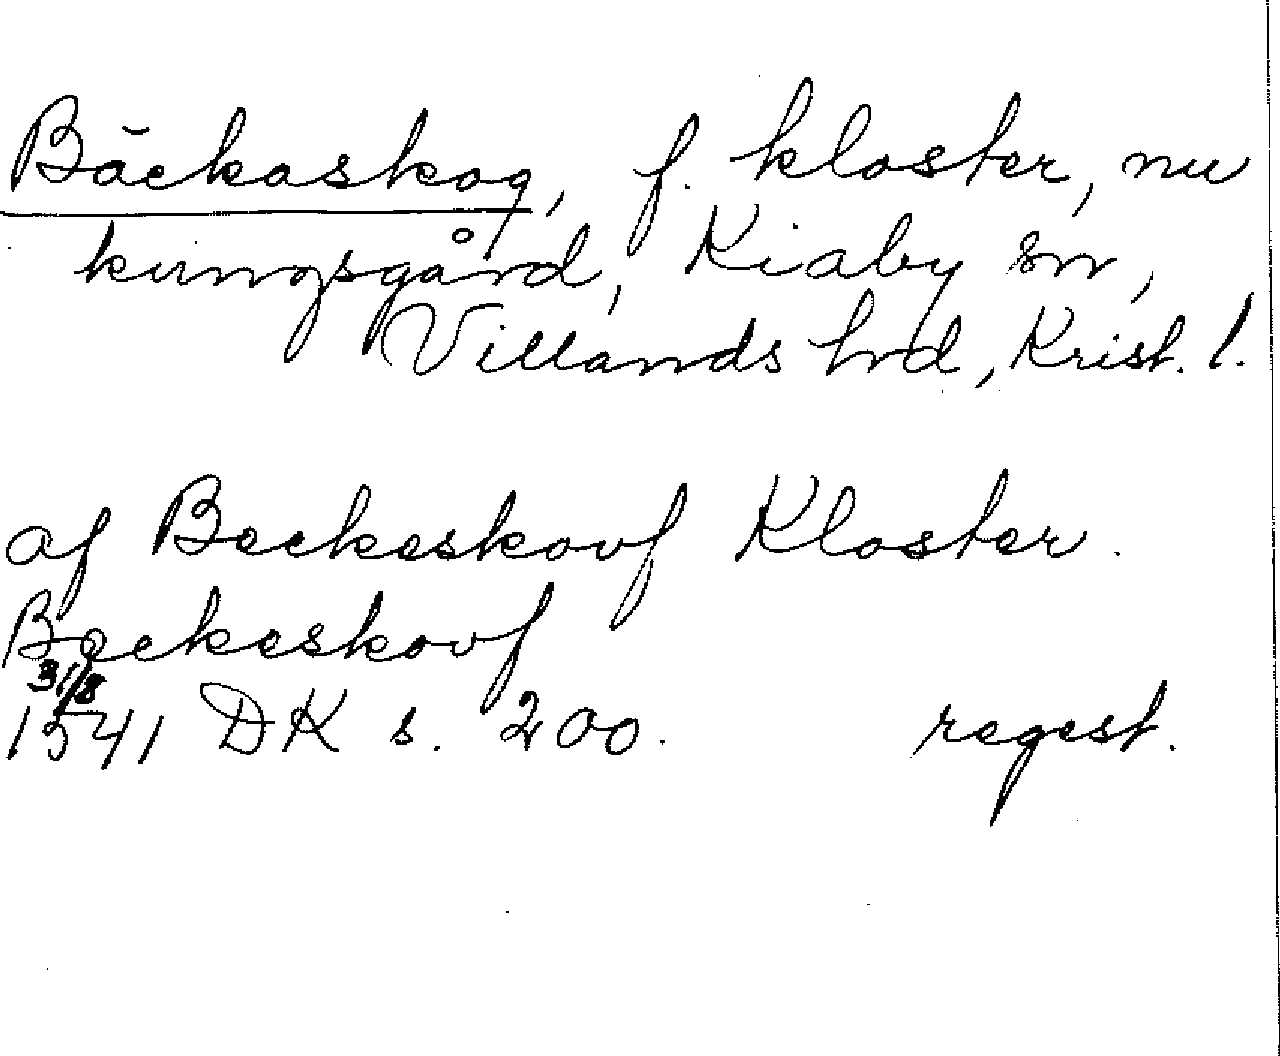 Bäckaskog, f. kloster, nu
kungsgård, Kiaby sn,
Villands hd, Krist. l.
af Beckeskovf Kloster.
Beckeskovf
31/8
1541 DK s. 200. regest.